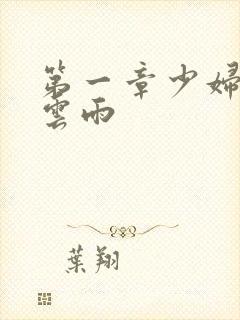 第一章少婦
雲雨
葉翔